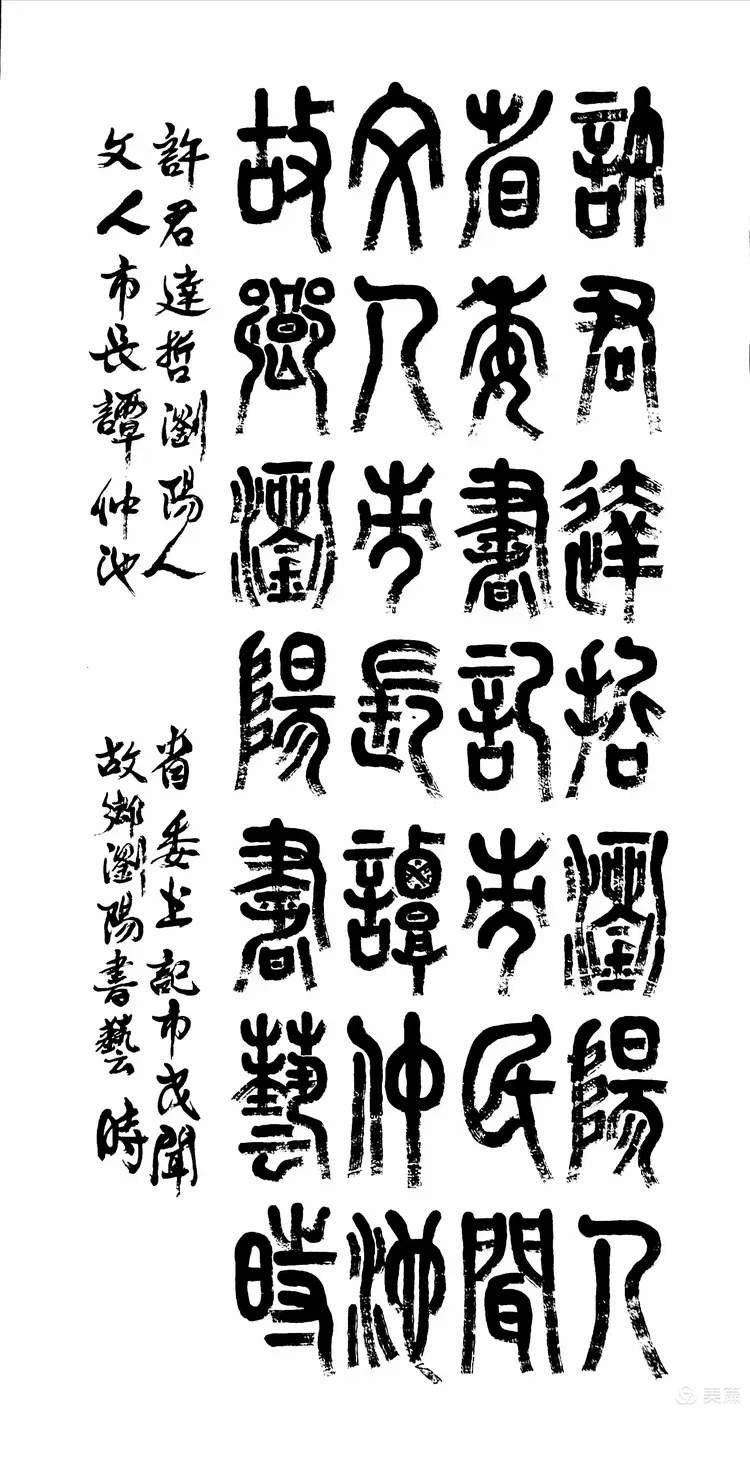 許君達哲瀏陽人
省委書記市民間
文人市長譚仲池
故鄉瀏陽書藝時
許君達哲瀏陽人 省委书記市民聞
文人市長譚仲池 故鄉瀏陽書藝時
美篇